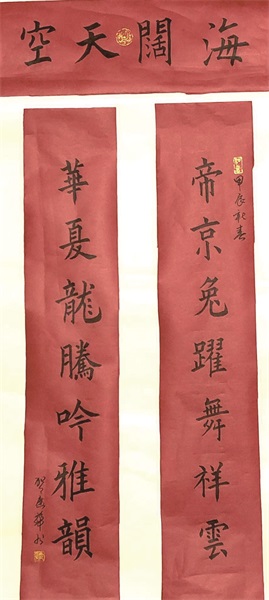 海闊天空
帝京兔躍舞祥雲
甲辰新春
華夏龍騰吟雅韻